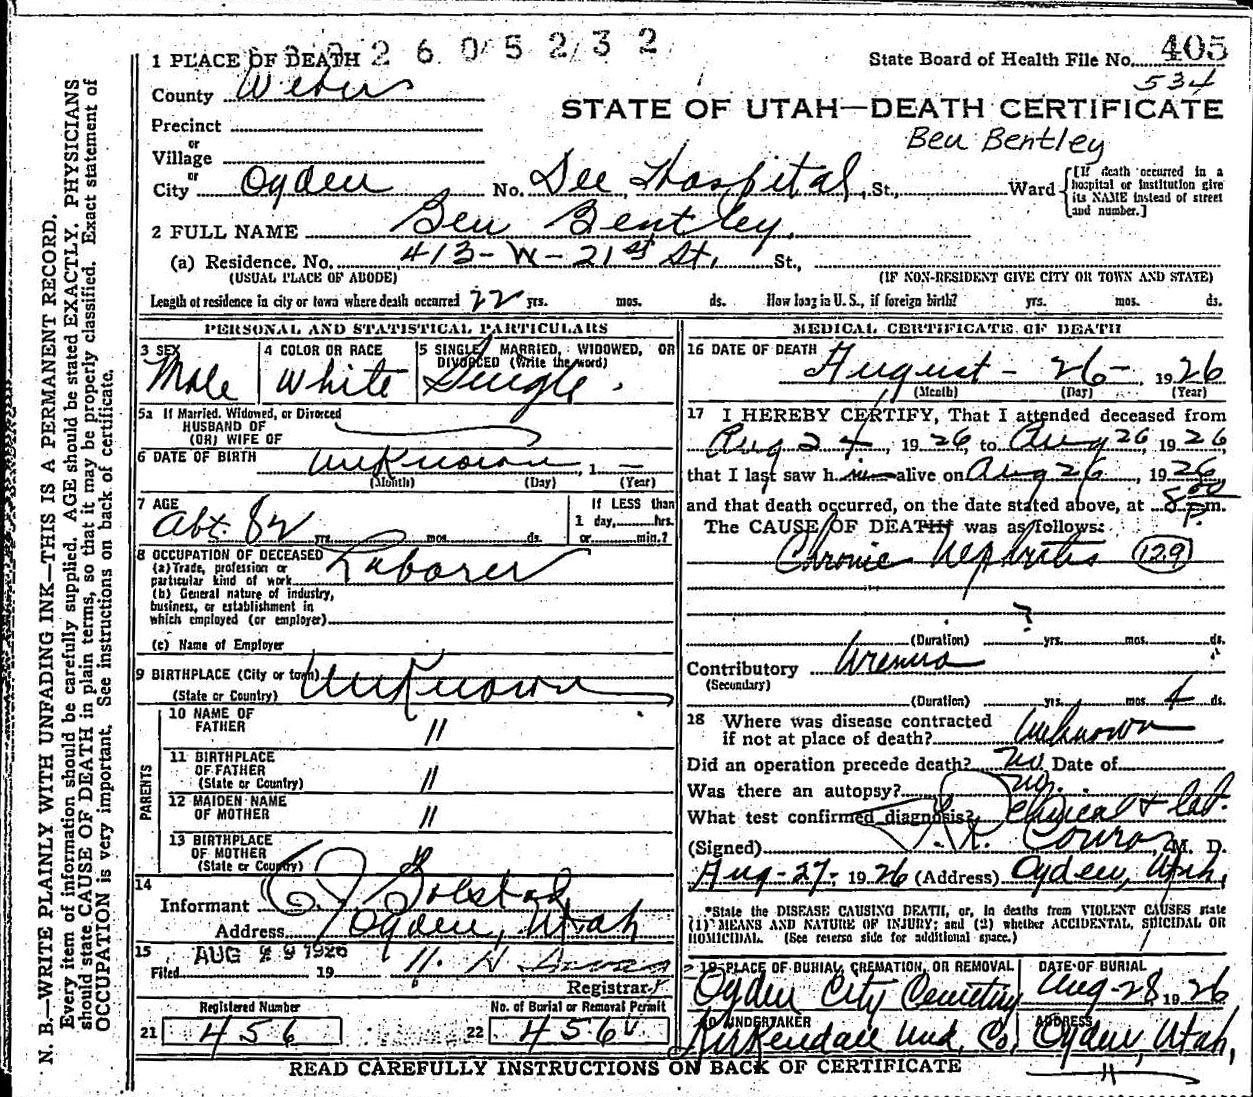 1 PLACE OF DEATH 2 6 0 5 2 3 2
State Board of Health File No. 405
534
County Weber
STATE OF UTAH—DEATH CERTIFICATE
Precinct
Ben Bentley
or
Village
or
City Ogden No. Dee Hospital, St., Ward
[If death occurred in a
hospital or institution give
its NAME instead of street
and number.]
2 FULL NAME Ben Bentley.
(a) Residence. No. 413-W-21st St. St.,
(USUAL PLACE OF ABODE) (IF NON-RESIDENT GIVE CITY OR TOWN AND STATE)
Length of residence in city or town where death occurred 22 yrs. mos. ds. How long in U. S., if foreign birth? yrs. mos. ds.
PERSONAL AND STATISTICAL PARTICULARS
3 SEX
Male
4 COLOR OR RACE
White
5 SINGLE, MARRIED, WIDOWED, OR
DIVORCED (Write the word)
Single.
5a If Married, Widowed, or Divorced
HUSBAND OF
(OR) WIFE OF
6 DATE OF BIRTH Unknown, 1 —
(Month) (Day) (Year)
7 AGE
Abt. 82 yrs. mos. ds.
If LESS than
1 day, hrs.
or min.?
8 OCCUPATION OF DECEASED
(a) Trade, profession or
particular kind of work Laborer
(b) General nature of industry,
business, or establishment in
which employed (or employer)
(c) Name of Employer
9 BIRTHPLACE (City or town)
(State or Country) Unknown
PARENTS
10 NAME OF
FATHER "
11 BIRTHPLACE
OF FATHER
(State or Country) "
12 MAIDEN NAME
OF MOTHER "
13 BIRTHPLACE
OF MOTHER
(State or Country) "
14
Informant
Address Ogden, Utah
15
Filed AUG 29 1926 19
Registrar
Registered Number
21 456
No. of Burial or Removal Permit
22 456
MEDICAL CERTIFICATE OF DEATH
16 DATE OF DEATH
August - 26 - 1926
(Month) (Day) (Year)
17 I HEREBY CERTIFY, That I attended deceased from
Aug 24, 1926, to Aug 26, 1926
that I last saw h im alive on Aug 26, 1926
and that death occurred, on the date stated above, at 8:00 P. m.
The CAUSE OF DEATH was as follows:
Chronic Nephritis (129)
?
(Duration) yrs. mos. ds.
Contributory Uremia
(Secondary)
(Duration) yrs. mos. 4 ds.
18 Where was disease contracted
if not at place of death? Unknown
Did an operation precede death? no Date of
Was there an autopsy? no.
What test confirmed diagnosis? Clinical & lab.
(Signed) M. D.
Aug-27-1926 (Address) Ogden, Utah.
*State the DISEASE CAUSING DEATH, or, in deaths from VIOLENT CAUSES state
(1) MEANS AND NATURE OF INJURY; and (2) whether ACCIDENTAL, SUICIDAL OR
HOMICIDAL. (See reverse side for additional space.)
19 PLACE OF BURIAL, CREMATION, OR REMOVAL
Ogden City Cemetery
DATE OF BURIAL
Aug-28, 1926
20 UNDERTAKER
Kirkendall Und. Co.
ADDRESS
Ogden, Utah,
READ CAREFULLY INSTRUCTIONS ON BACK OF CERTIFICATE
N. B.—WRITE PLAINLY WITH UNFADING INK—THIS IS A PERMANENT RECORD.
Every item of information should be carefully supplied. AGE should be stated EXACTLY. PHYSICIANS
should state CAUSE OF DEATH in plain terms, so that it may be properly classified. Exact statement of
OCCUPATION is very important. See instructions on back of certificate.